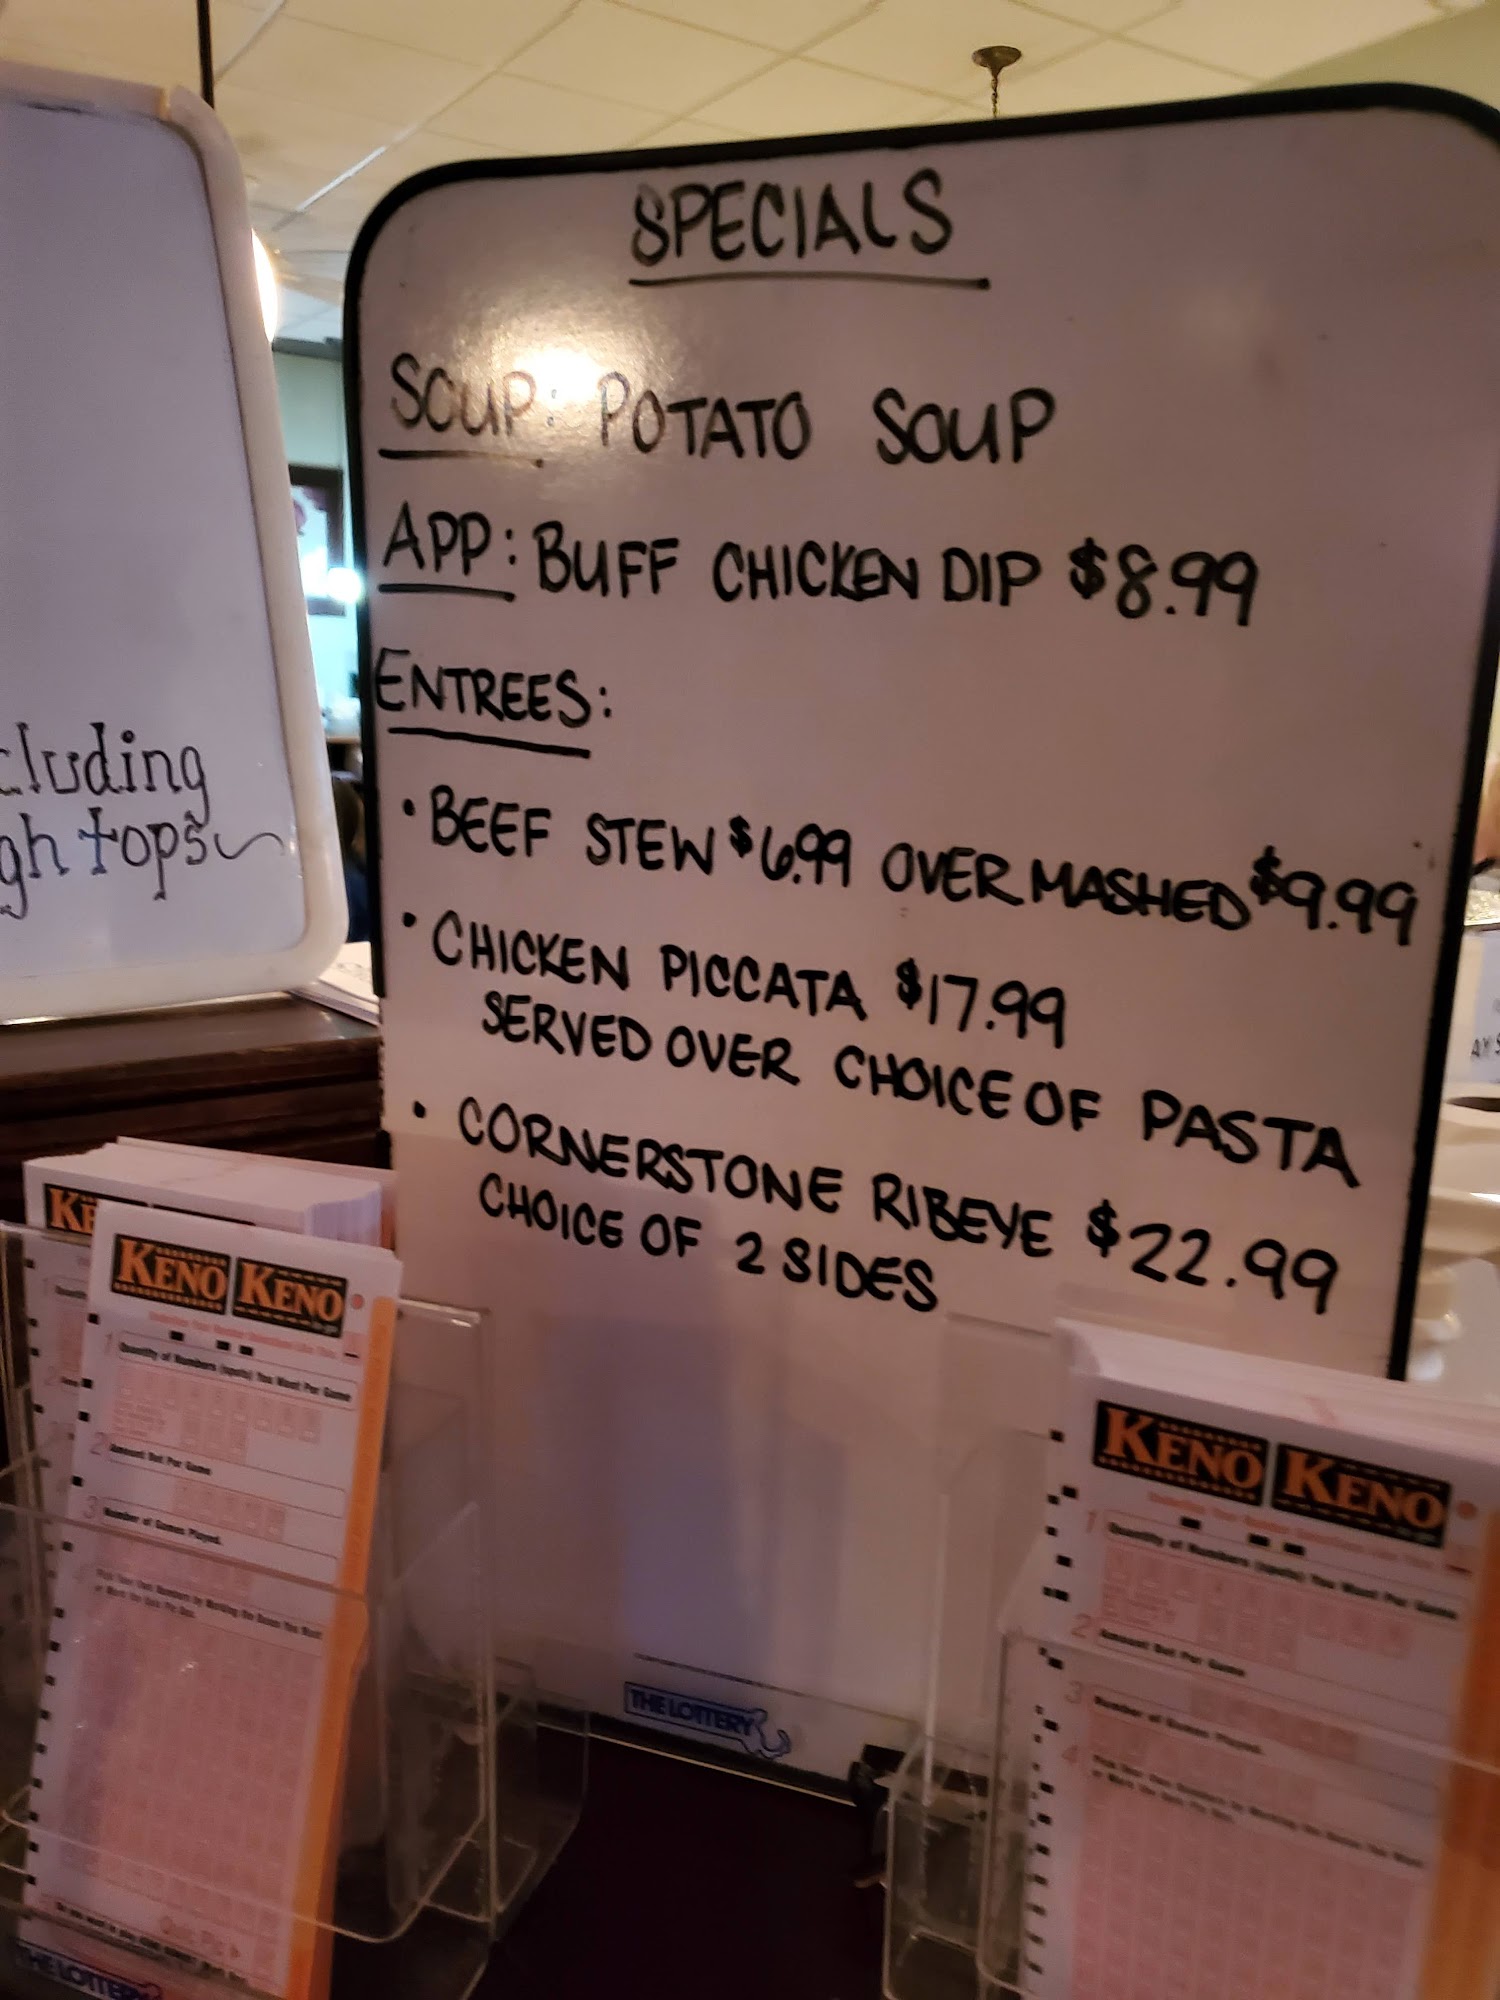 SPECIALS
SOUP: POTATO SOUP
APP: BUFF CHICKEN DIP $8.99
ENTREES:
• BEEF STEW $6.99 OVER MASHED $9.99
• CHICKEN PICCATA $17.99
SERVED OVER CHOICE OF PASTA
• CORNERSTONE RIBEYE $22.99
CHOICE OF 2 SIDES
cluding
gh tops
KENO KENO
1 Quantity of Numbers (spots) You Want Per Game
2 Amount Bet Per Game
3 Number of Games Played.
Quic Pic
THE LOTTERY
THE LOTTERY
KENO KENO
1 Quantity of Numbers (spots) You Want Per Game
2 Amount Bet Per Game
3 Number of Games Played.
4